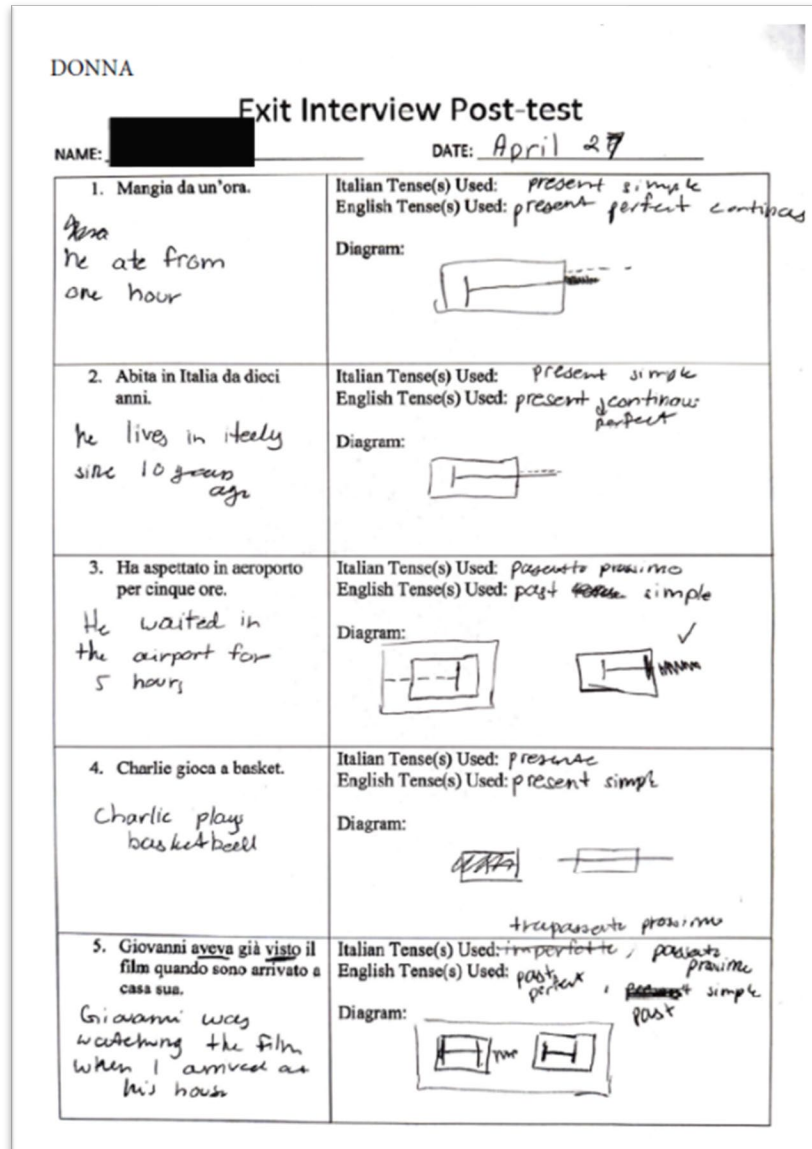 DONNA
Exit Interview Post-test
NAME:
DATE: April 27
1. Mangia da un'ora.
he ate from
one hour
Italian Tense(s) Used: present simple
English Tense(s) Used: present perfect continous
Diagram:
2. Abita in Italia da dieci
anni.
he lives in iteely
sine 10 years
ago
Italian Tense(s) Used: present simple
English Tense(s) Used: present continous
perfect
Diagram:
3. Ha aspettato in aeroporto
per cinque ore.
He waited in
the airport for
5 hours
Italian Tense(s) Used: passato prossimo
English Tense(s) Used: past simple
Diagram:
4. Charlie gioca a basket.
Charlie plays
basketbeell
Italian Tense(s) Used: presense
English Tense(s) Used: present simple
Diagram:
trapassato prossimo
5. Giovanni aveva già visto il
film quando sono arrivato a
casa sua.
Giovanni was
watching the film
when I arrived at
his house
Italian Tense(s) Used: imperfetto, passato
prossimo
English Tense(s) Used: past perfect, simple
past
Diagram: